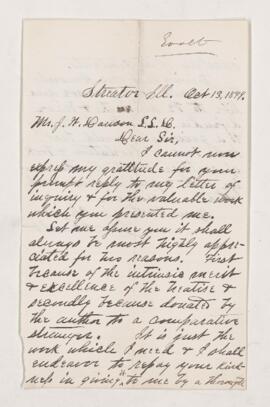 Streator Ill. Oct 13, 1898.
Mr. J. W. Dawson L.L.D.
Dear Sir,
I cannot now
express my gratitude for your
prompt reply to my letter of
inquiry & for the valuable work
which you presented me.
Let me assure you it shall
always be most highly appre-
ciated for two reasons. First
because of the intrinsic merit
& excellence of the treatise &
secondly because donated by
the author to a comparative
stranger. It is just the
work which I need & I shall
endeavor to repay your kind-
ness in giving it to me by a thorough